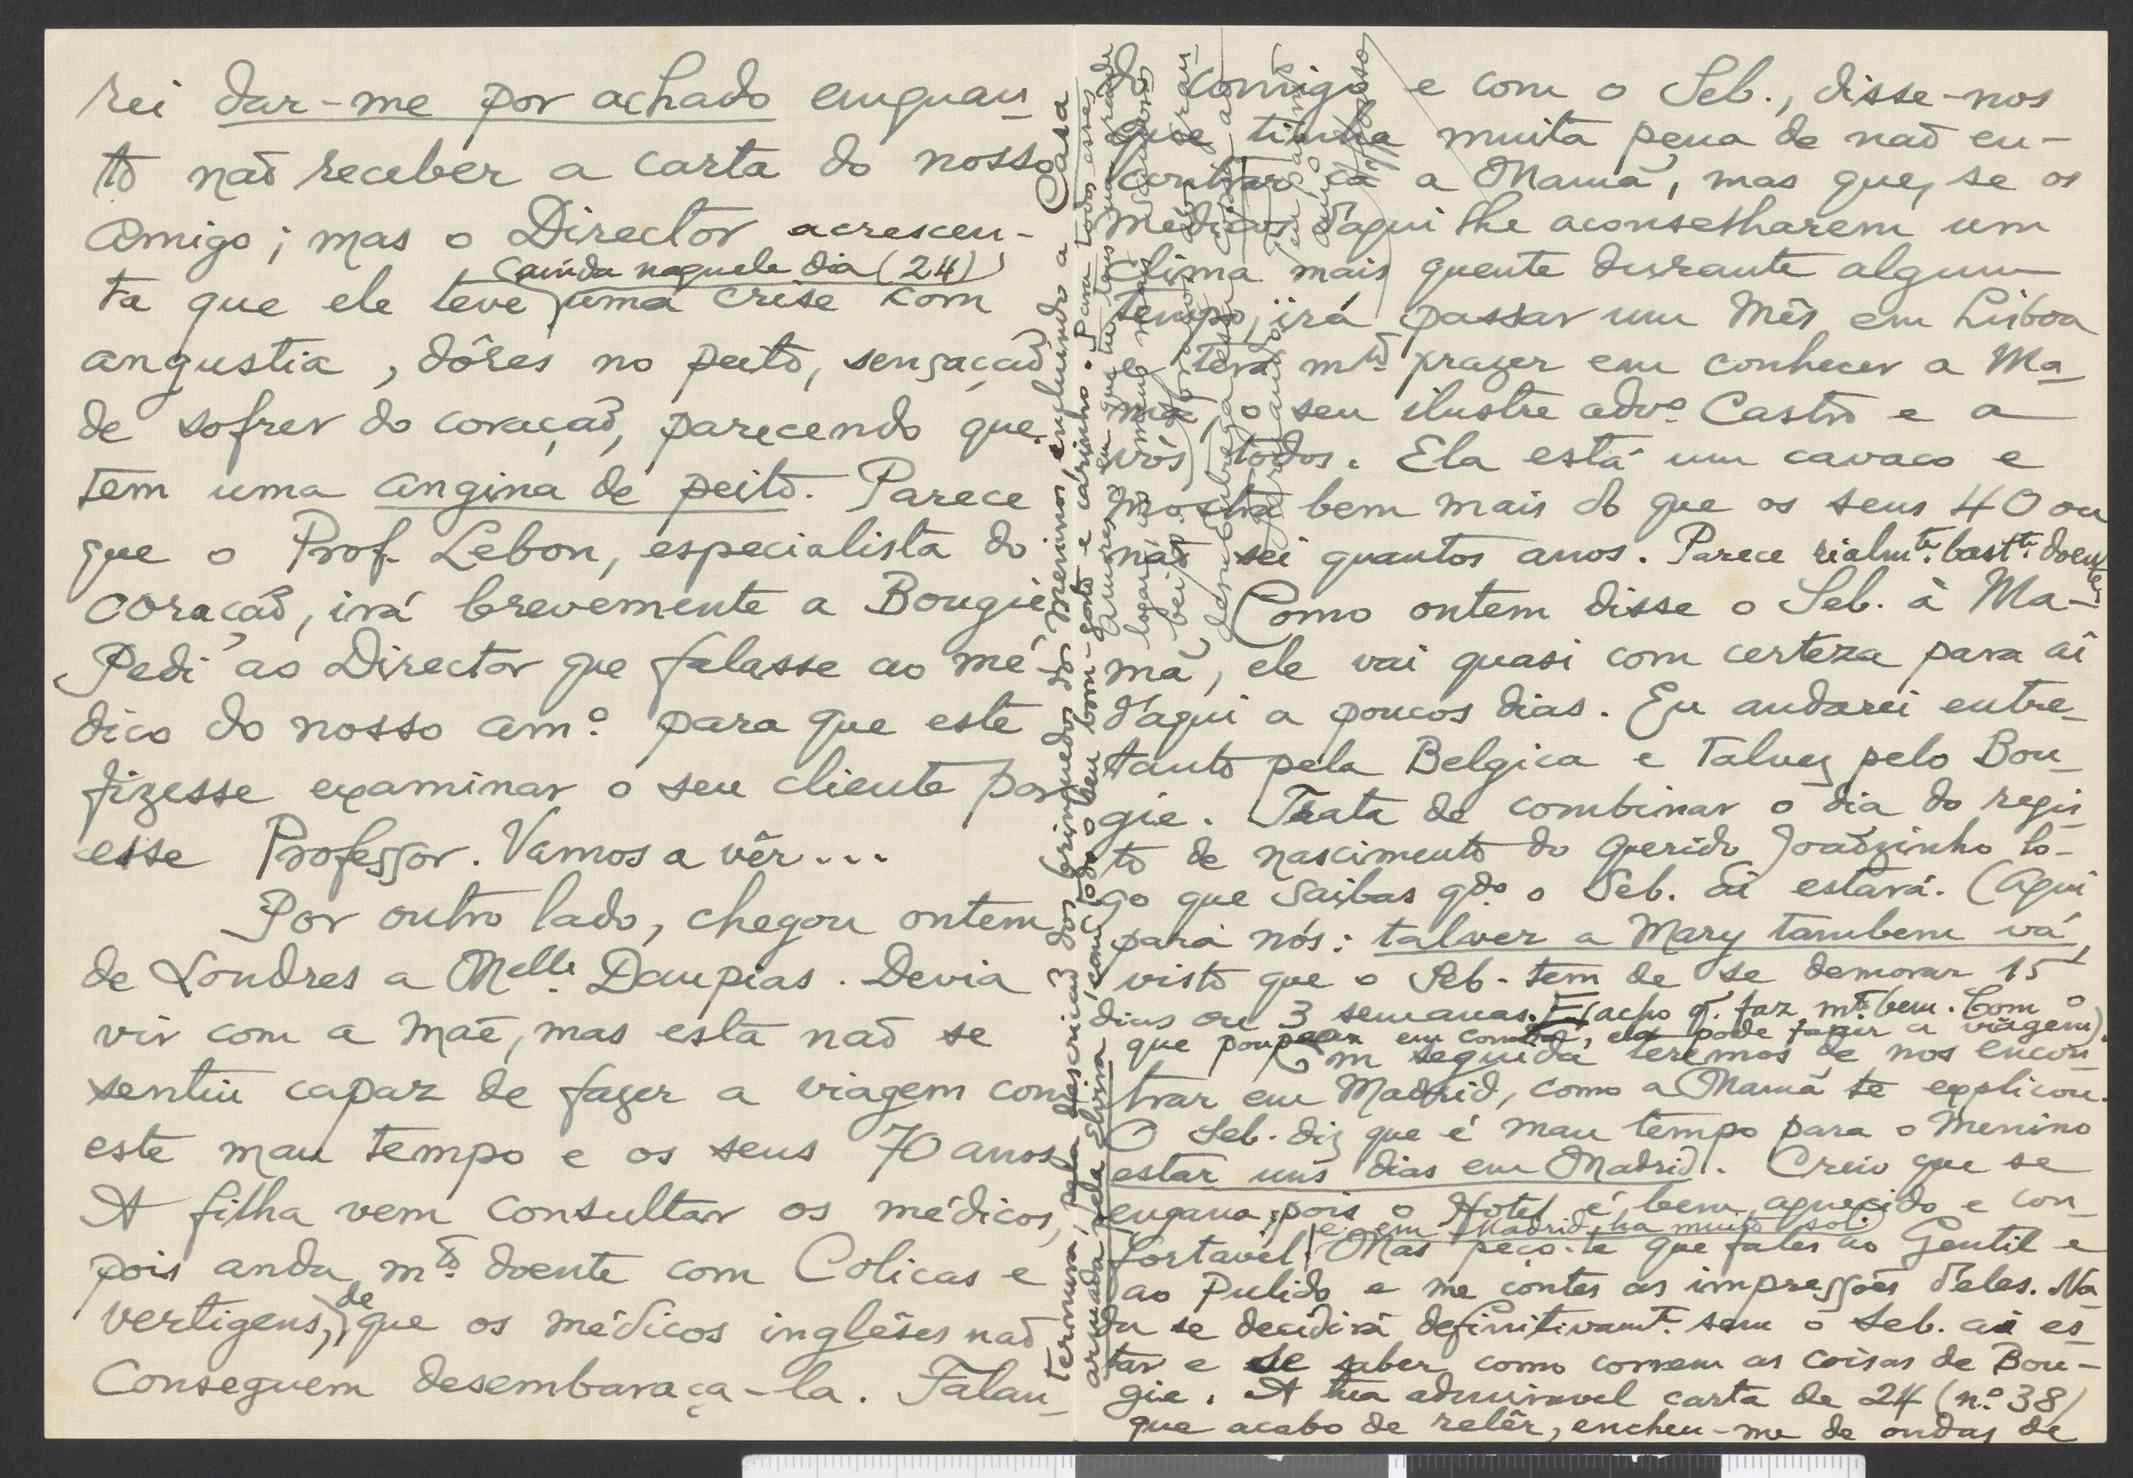 rei dar-me por achado emquan-
to não receber a carta do nosso
Amigo; mas o Director acrescen-
ta que ele teve (ainda naquele dia (24)) uma crise com
angustia, dôres no peito, sensação
de sofrer do coração, parecendo que
tem uma angina de peito. Parece
que o Prof. Lebon, especialista do
coração, irá brevemente a Bougie.
Pedi ao Director que falasse ao mé-
dico do nosso amº para que este
fizesse examinar o seu cliente por
esse Professor. Vamos a vêr...
Por outro lado, chegou ontem
de Londres a Melle. Daupias. Devia
vir com a mãe, mas esta não se
sentiu capaz de fazer a viagem com
este mau tempo e os seus 70 anos.
A filha vem consultar os médicos,
pois anda mto. doente com colicas e
vertigens, de que os médicos inglêses não
conseguem desembaraça-la. Falan-
do comigo e com o Seb., disse-nos
que tinha muita pena de não en-
contrar cá a Mamã, mas que, se os
médicos d'aqui lhe aconselharem um
clima mais quente durante algum
tempo, irá passar um mês em Lisboa
e terá mto. prazer em conhecer a Ma-
mã, o seu ilustre advº. Castro e a
vós todos. Ela está um cavaco e
mostra bem mais do que os seus 40 ou
não sei quantos anos. Parece rialmte. bastte. doente.
Como ontem disse o Seb. à Ma-
mã, ele vai quasi com certeza para aí
d'aqui a poucos dias. Eu andarei entre-
tanto pela Belgica e talvez pelo Bou-
gie. Trata de combinar o dia do regis-
to de nascimento do querido Joãozinho lo-
go que saibas qdo. o Seb. aí estará. (Aqui
para nós: talvez a Mary tambem vá,
visto que o Seb. tem de se demorar 15
dias ou 3 semanas. E acho q. faz mto. bem. Com o
que poupam em comida, ela pode fazer a viagem).
Em seguida teremos de nos encon-
trar em Madrid, como a Mamã te explicou.
O Seb. diz que é mau tempo para o Menino
estar uns dias em Madrid. Creio que se
engana, pois o Hotel é bem aquecido e con-
fortavel (e em Madrid ha muito sol). Mas peço-te que fales ao Gentil e
ao Pulido e me contes as impressões d'eles. Na-
da se decidirá definitivamte. sem o Seb. aí es-
tar e se saber como correm as coisas de Bou-
gie. A tua admiravel carta de 24 (nº. 38)
que acabo de relêr, encheu-me de ondas de
ternura, pela descrição dos brinquedos dos Meninos, enchendo a Casa
arrumada pela Elvira com todo o seu bom-gosto e carinho. Para todos esses
Amores em que tu tens um grande